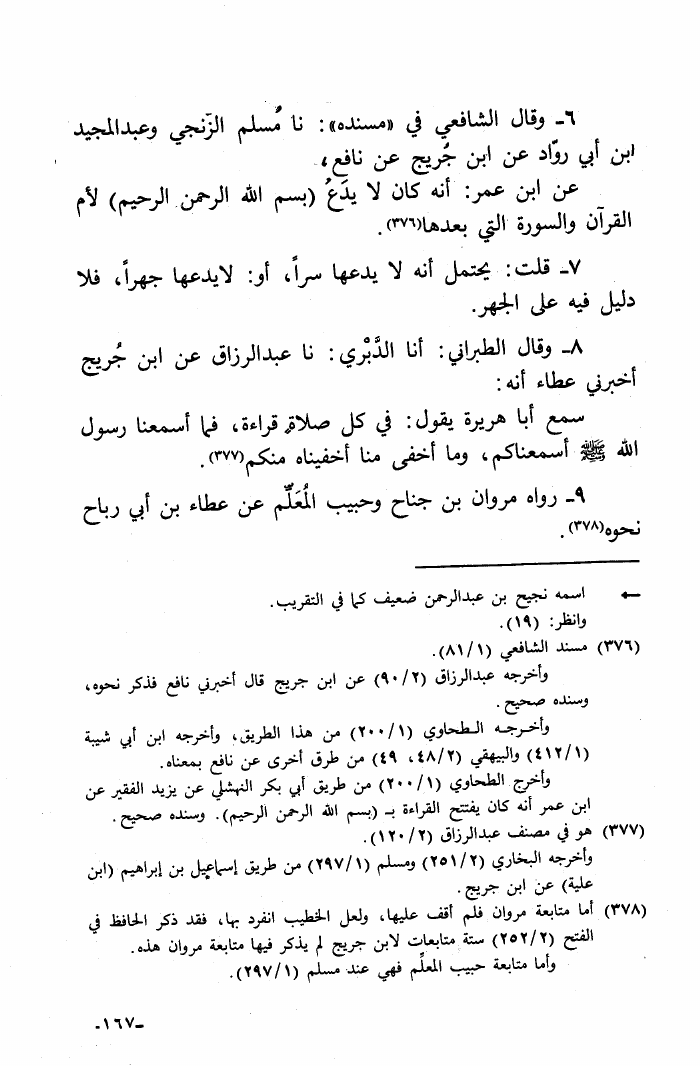 ٦ـ وقال الشافعي في «مسنده»: نا مُسلم الزّنجي وعبدالمجيد
ابن أبي روّاد عن ابن جُريج عن نافع،
عن ابن عمر: أنه كان لا يدَعُ (بسم الله الرحمن الرحيم) لأم
القرآن والسورة التي بعدها(٣٧٦).
٧ـ قلت: يحتمل أنه لا يدعها سراً، أو: لايدعها جهراً، فلا
دليل فيه على الجهر.
٨ـ وقال الطبراني: أنا الدَّبْري: نا عبدالرزاق عن ابن جُريج
أخبرني عطاء أنه:
سمع أبا هريرة يقول: في كل صلاةٍ قراءة، فما أسمعنا رسول
الله ﷺ أسمعناكم، وما أخفى منا أخفيناه منكم(٣٧٧).
٩ـ رواه مروان بن جناح وحبيب المُعَلِّم عن عطاء بن أبي رباح
نحوه(٣٧٨).
← اسمه نجيح بن عبدالرحمن ضعيف كما في التقريب.
وانظر: (١٩).
(٣٧٦) مسند الشافعي (٨١/١).
وأخرجه عبدالرزاق (٩٠/٢) عن ابن جريج قال أخبرني نافع فذكر نحوه،
وسنده صحيح.
وأخرجه الطحاوي (٢٠٠/١) من هذا الطريق، وأخرجه ابن أبي شيبة
(٤١٢/١) والبيهقي (٤٨/٢، ٤٩) من طرق أخرى عن نافع بمعناه.
وأخرج الطحاوي (٢٠٠/١) من طريق أبي بكر النهشلي عن يزيد الفقير عن
ابن عمر أنه كان يفتتح القراءة بـ (بسم الله الرحمن الرحيم). وسنده صحيح.
(٣٧٧) هو في مصنف عبدالرزاق (١٢٠/٢).
وأخرجه البخاري (٢٥١/٢) ومسلم (٢٩٧/١) من طريق إسماعيل بن إبراهيم (ابن
علية) عن ابن جريج.
(٣٧٨) أما متابعة مروان فلم أقف عليها، ولعل الخطيب انفرد بها، فقد ذكر الحافظ في
الفتح (٢٥٢/٢) ستة متابعات لابن جريج لم يذكر فيها متابعة مروان هذه.
وأما متابعة حبيب المعلِّم فهي عند مسلم (٢٩٧/١).
-١٦٧-